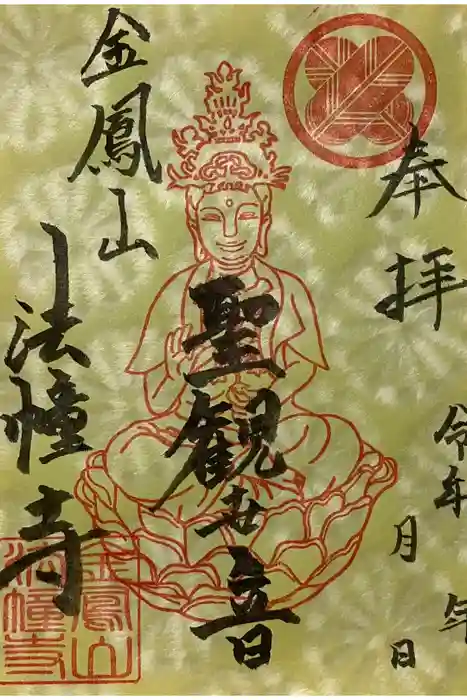 奉拝
令和 年 月 日
聖観世音
金鳳山
法幢寺
金鳳山
法幢寺